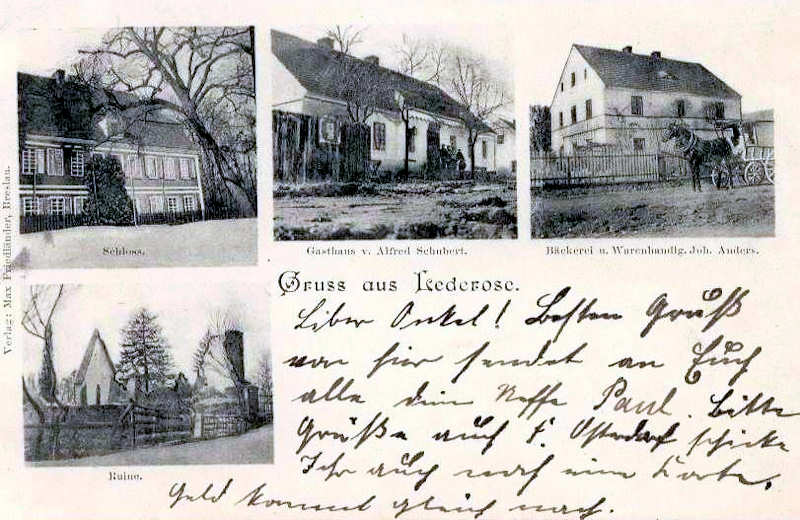 Schloss.
Gasthaus v. Alfred Schubert.
Bäckerei u. Warenhandlg. Joh. Anders.
Verlag: Max Friedländer, Breslau.
Gruss aus Lederose.
Liber Onkel! Besten Gruß
von hier sendet an Euch
alle dein Neffe Paul. Bitte
Grüße auch F. schicke
Ihr auch noch eine Karte,
Geld kommt gleich nach.
Ruine.